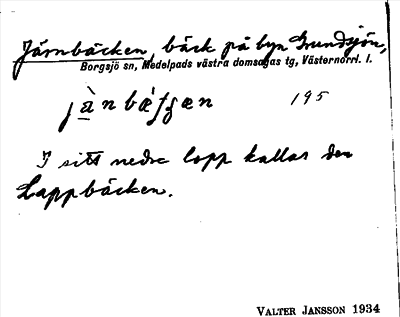 Järnbäcken, bäck på byn Grundsjön,
Borgsjö sn, Medelpads västra domsagas tg, Västernorrl. l.
jà̱nbæ̀ʃʃæn 195
I sitt nedre lopp kallas den
Lappbäcken.
VALTER JANSSON 1934